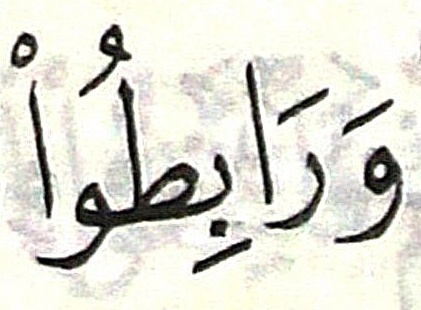 وَرَابِطُوا۟